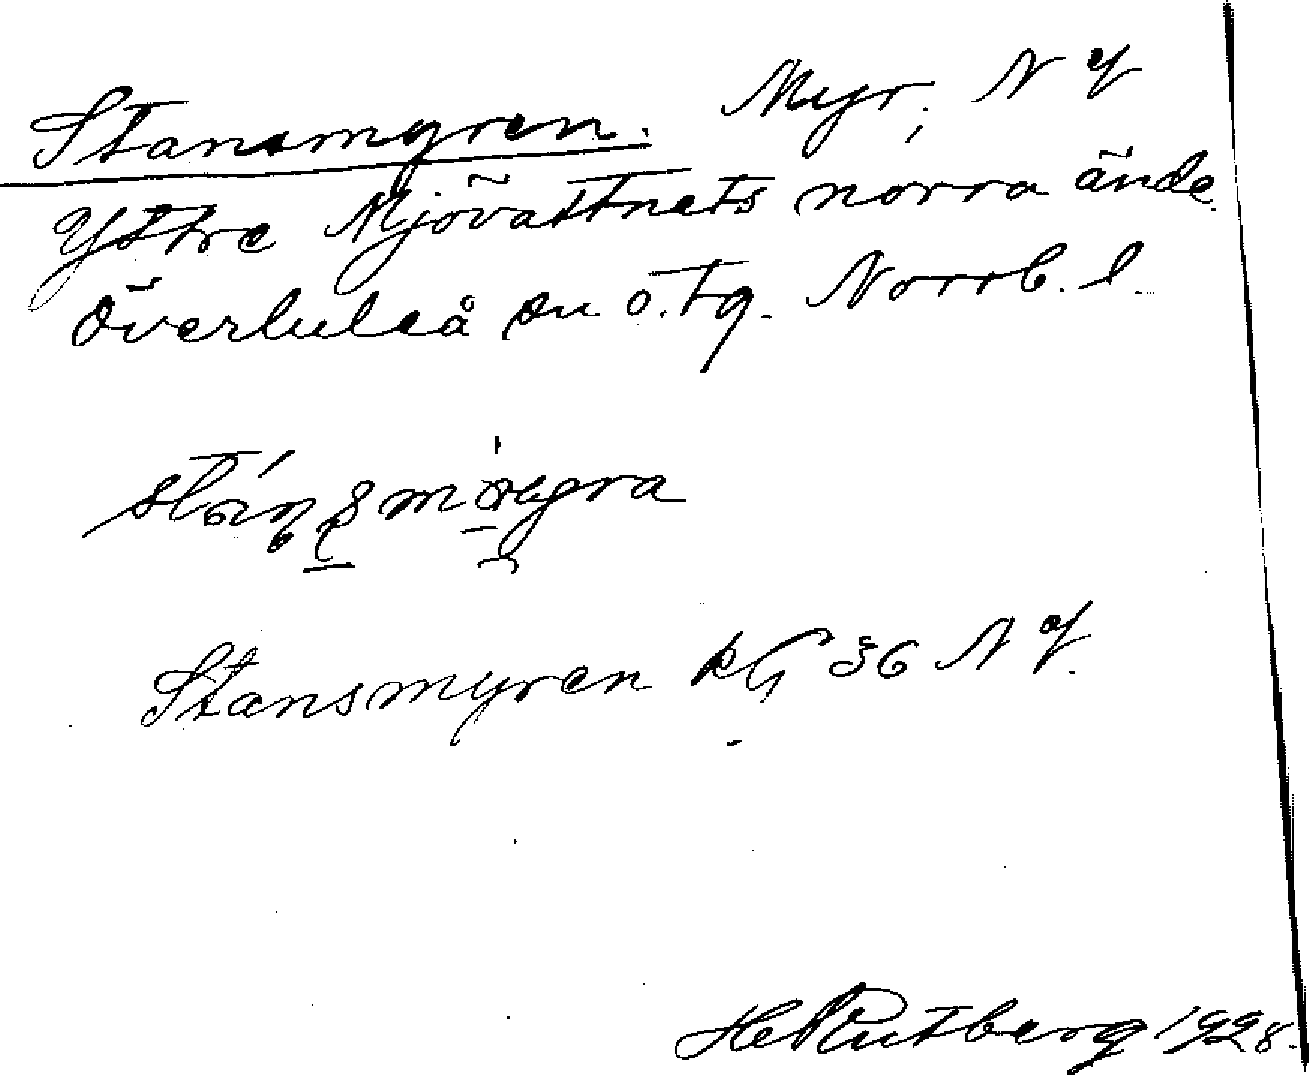 Stansmyren. Myr, N
Yttre Mjövattnets norra ände.
Överluleå sn ö. tg. Norrb. l.
Stansmyren 36 N
Rutberg 1928.